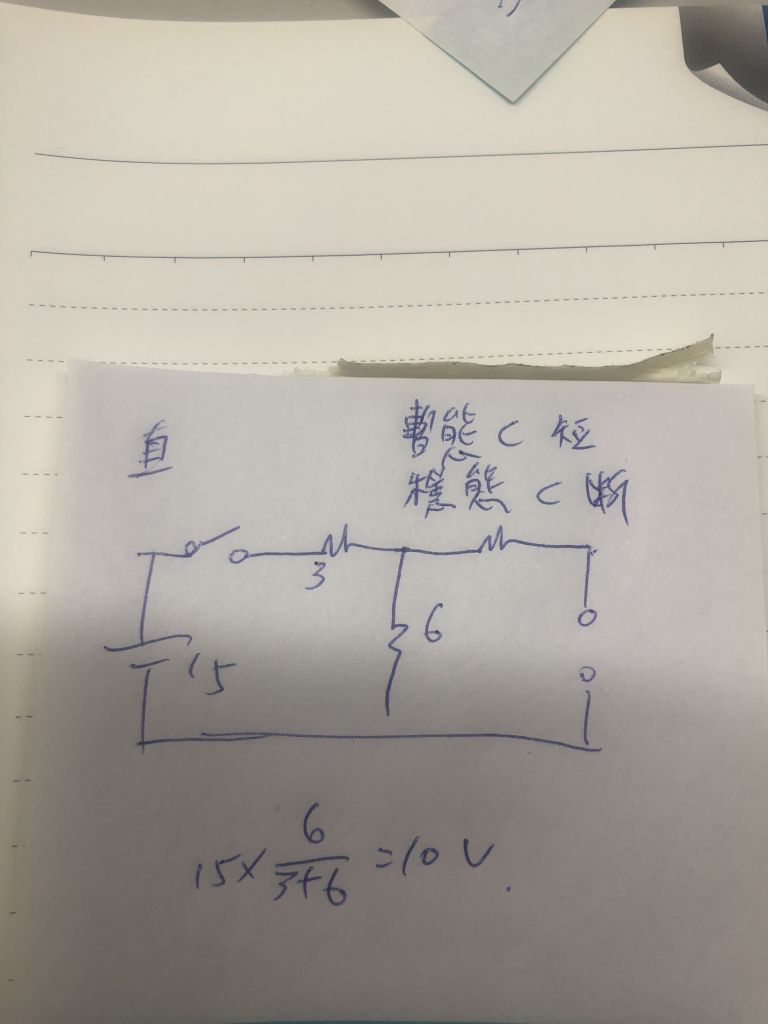 直
暫態 C 短
穩態 C 斷
3
6
15
15× 6/(3+6) =10 V.